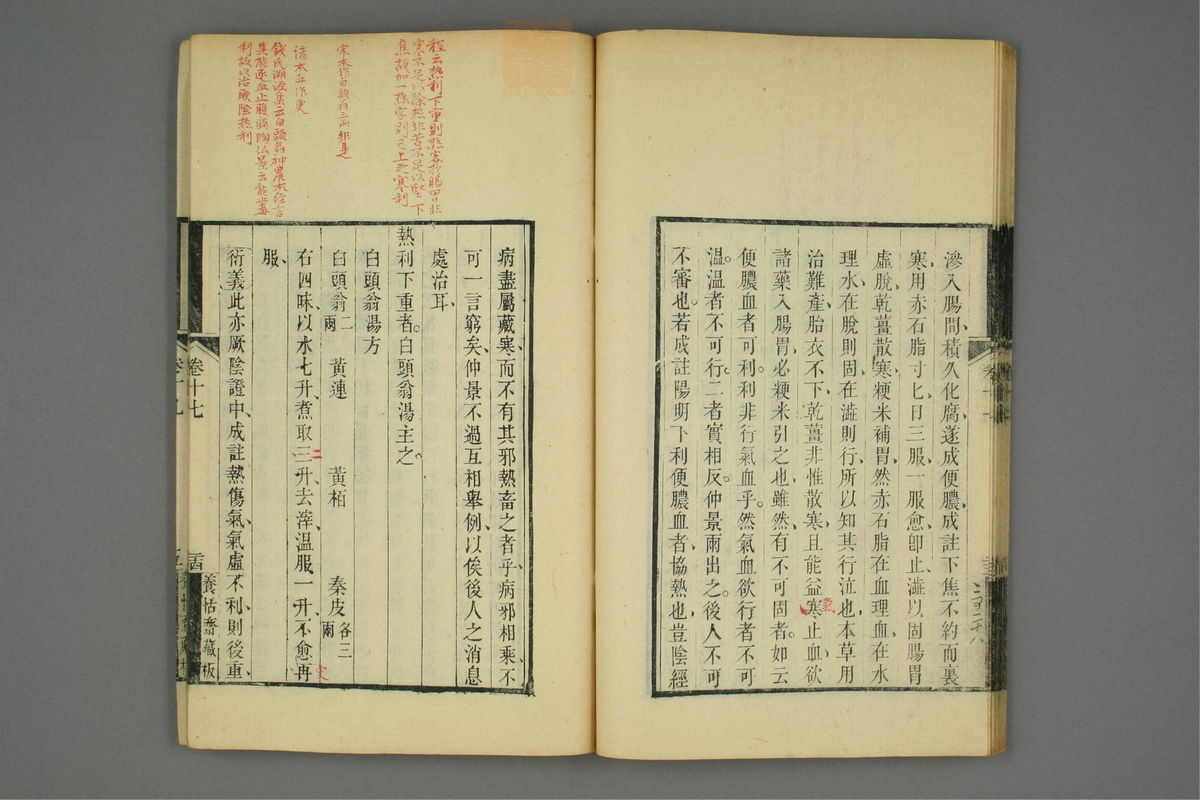 滲入腸間、積久化腐、遂成便膿、成註下焦不約而裏
寒、用赤石脂寸匕日三服、一服愈卽止、澁以固腸胃
虛脫、乾薑散寒、粳米補胃、然赤石脂在血理血、在水
理水、在脫則固、在澁則行、所以知其行泄也、本草用
治難產胎衣不下、乾薑非惟散寒、且能益寒止血、欲
氣
諸藥入腸胃、必粳米引之也、雖然有不可固者。如云
便膿血者可利。利非行氣血乎。然氣血欲行者不可
溫。溫者不可行。二者實相反。仲景兩出之。後人不可
不審也。若成註陽明下利便膿血者、協熱也、豈陰經
程云熱利下重則熱客於腸胃非
寒不足以除熱非苦不足以堅下
焦故加一熱字別已上之寒利
宋本作白頭翁三兩非是
諸本升作更
錢氏溯源集云白頭翁神農本經言
其能逐血止腹痛陶弘景云能止毒
利故以治厥陰熱利
病盡屬藏寒、而不有其邪熱畜之者乎、病邪相乘、不
可一言窮矣、仲景不過互相舉例、以俟後人之消息
處治耳、
熱利下重者。白頭翁湯主之。
白頭翁湯方
白頭翁二兩 黃連 黃栢 秦皮各三兩
右四味、以水七升、煮取三升、去滓、溫服一升、不愈再
二
服、
衍義此亦厥陰證中、成註熱傷氣、氣虛不利、則後重、
卷十七
養恬齋藏板